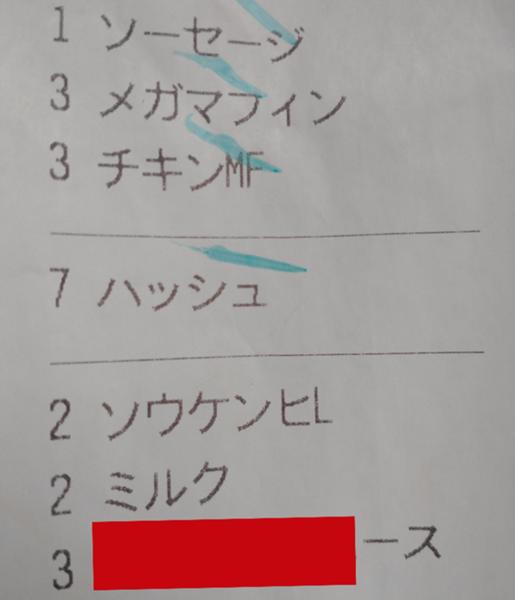 1 ソーセージ
3 メガマフィン
3 チキンMF
7 ハッシュ
2 ソウケンヒL
2 ミルク
3 ース